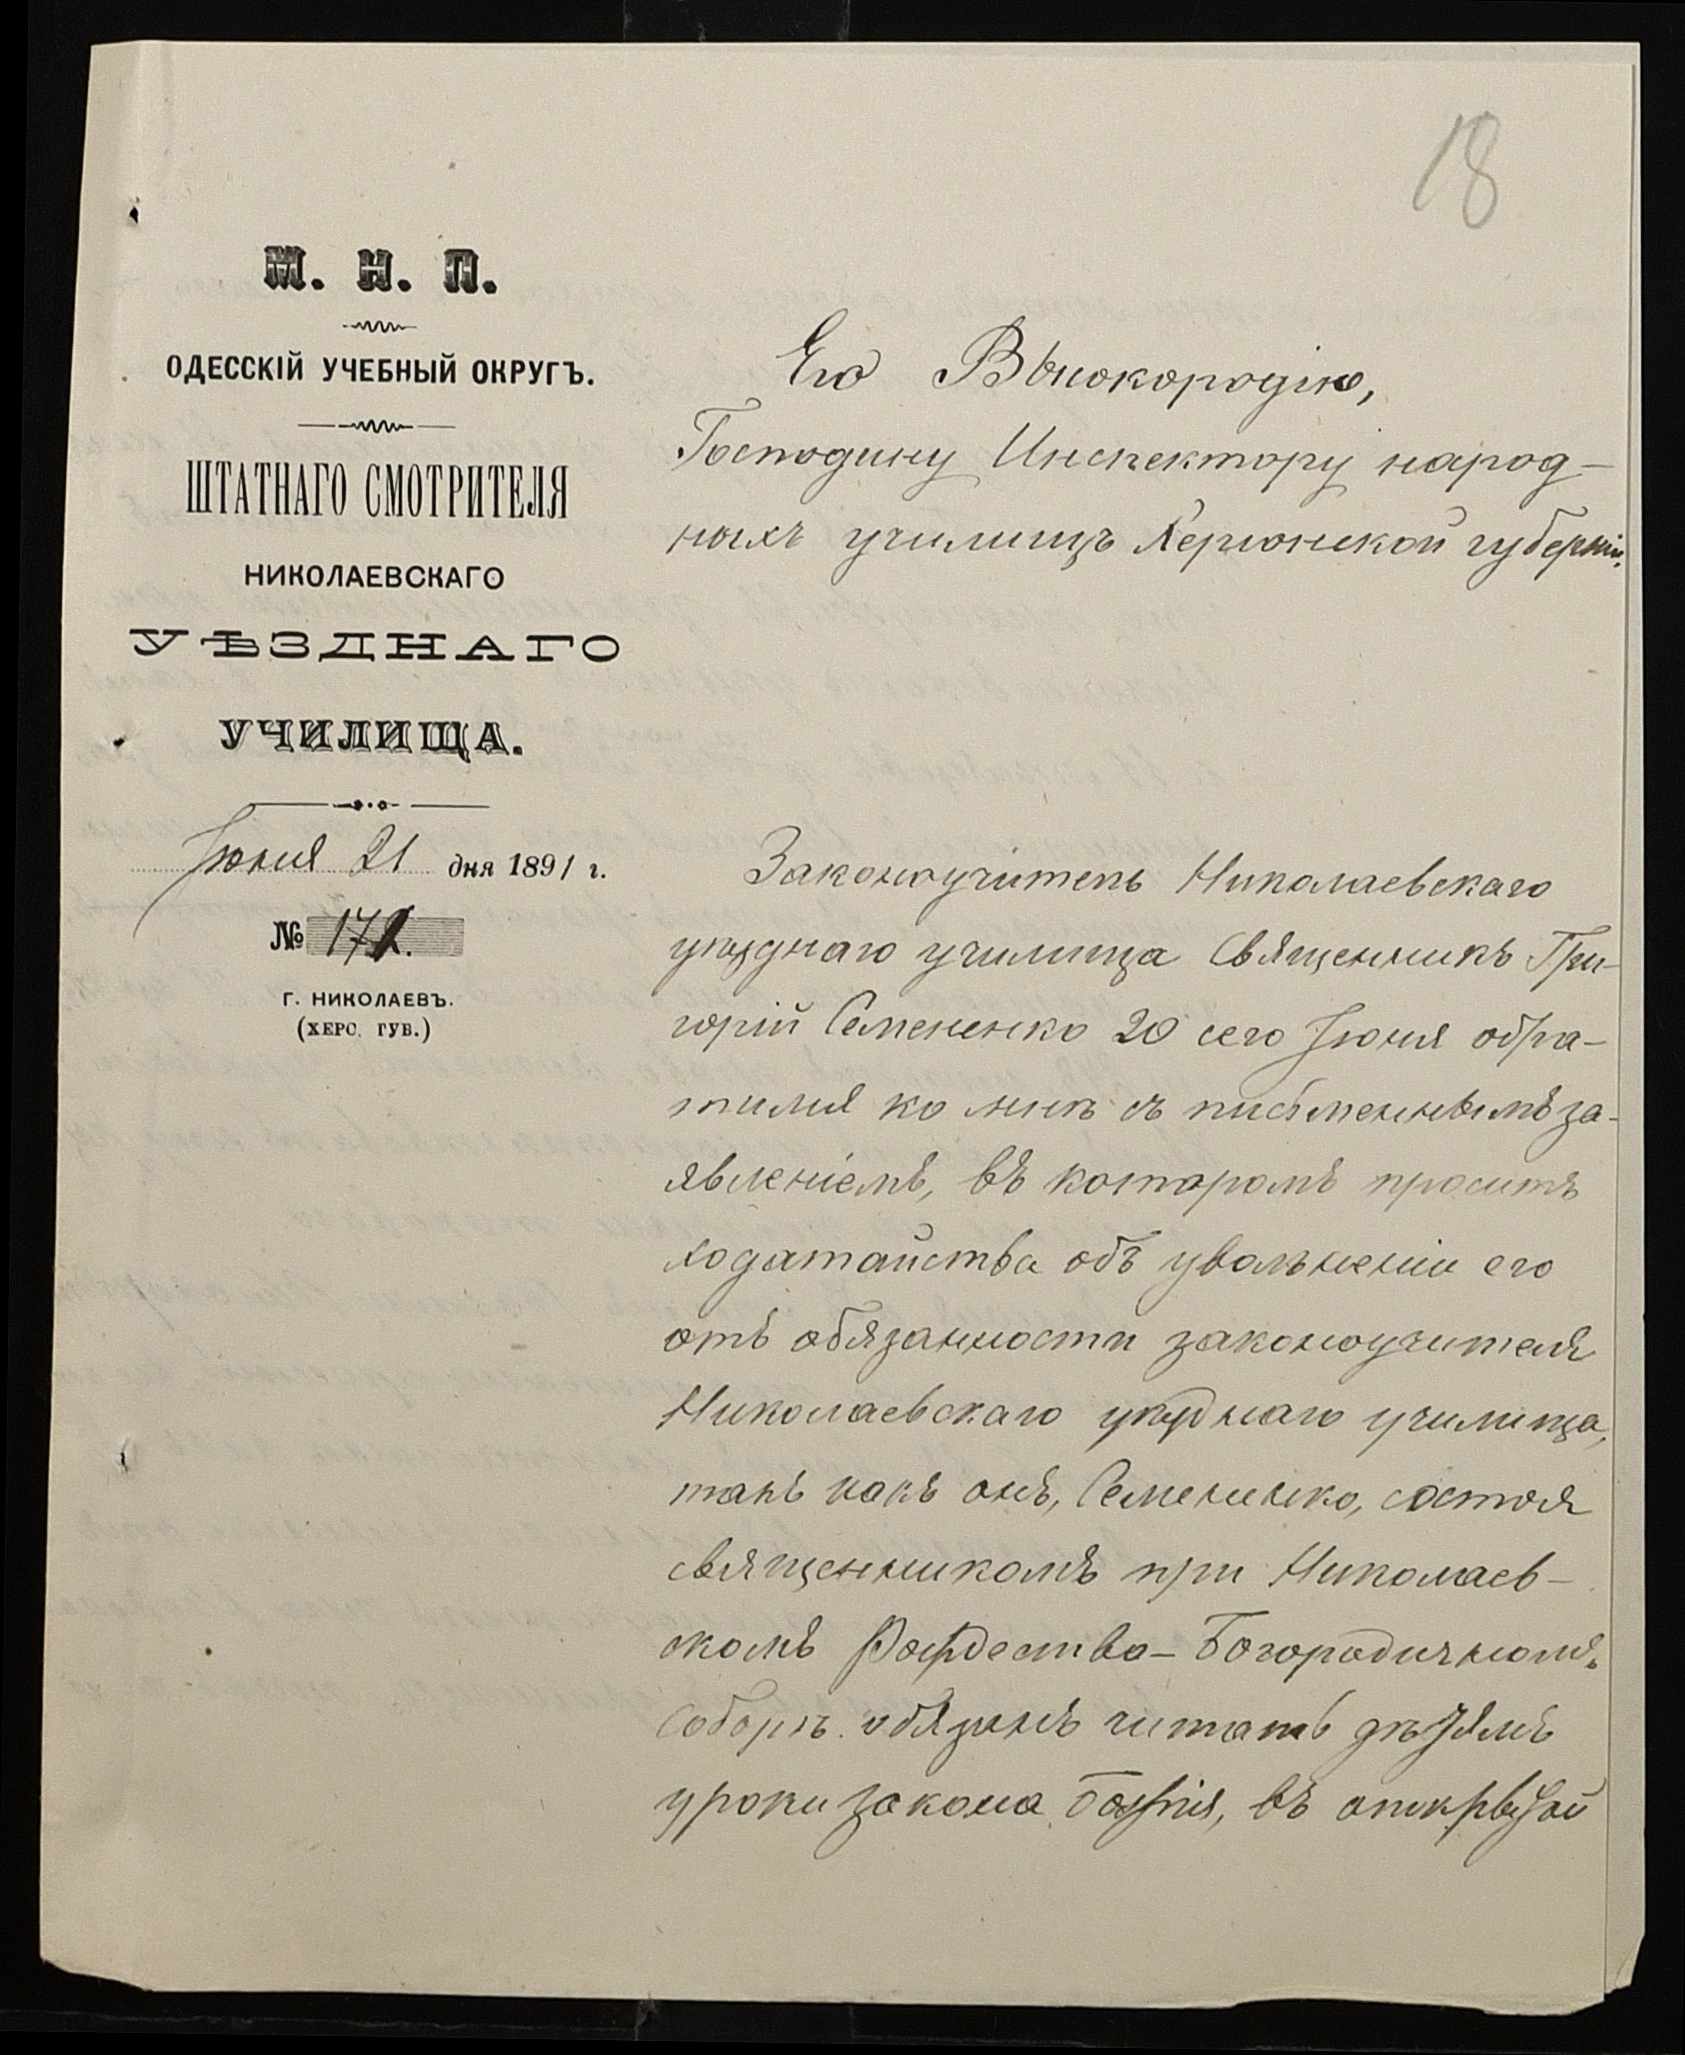 18
М. Н. П.
ОДЕССКІЙ УЧЕБНЫЙ ОКРУГЪ.
ШТАТНАГО СМОТРИТЕЛЯ
НИКОЛАЕВСКАГО
УѢЗДНАГО
УЧИЛИЩА.
Іюня 21 дня 1891 г.
№ 172.
Г. НИКОЛАЕВЪ.
(ХЕРС. ГУБ.)
Его Высокородію,
Господину Инспектору народ-
ныхъ училищъ Херсонской губерніи.
Законоучитель Николаевскаго
уѣзднаго училища Священникъ Гри-
горій Семененко 20 сего Іюня обра-
тился ко мнѣ съ письменнымъ за-
явленіемъ, въ которомъ проситъ
ходатайства объ увольненіи его
отъ обязанности законоучителя
Николаевскаго уѣзднаго училища,
такъ какъ онъ, Семененко, состоя
священникомъ при Николаев-
скомъ Рождество-Богородичномъ
Соборѣ обязанъ читать дѣтямъ
уроки закона Божія, въ открытой